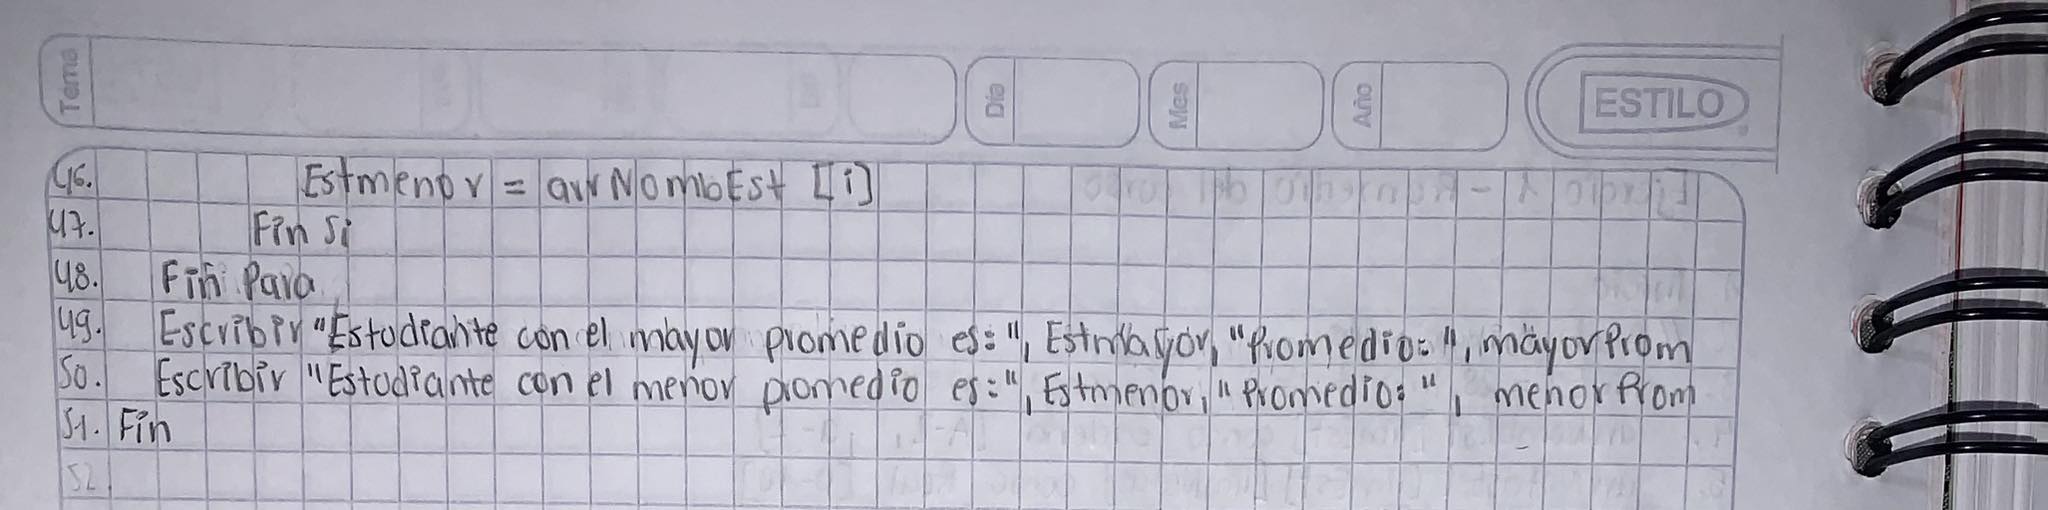 Tema
Día
Mes
Año
ESTILO
46. Estmenor = arrNombEst [i]
47. Fin Si
48. Fin Para
49. Escribir "Estudiante con el mayor promedio es:", EstMayor, "Promedio:", mayorProm
50. Escribir "Estudiante con el menor promedio es:", Estmenor, "Promedio:", menorProm
51. Fin
52.